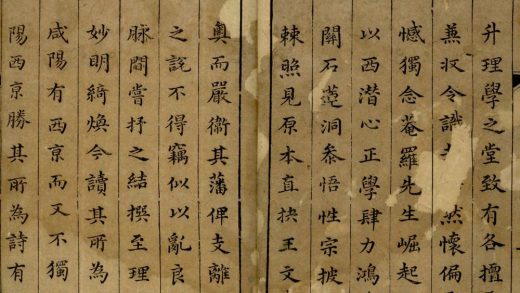 升理學之堂致有各擅
兼収令識然懷偏
憾獨念菴羅先生崛起
以西潜心正學肆力鴻
闢石蓮洞叅悟性宗披
棘照見原本直抉王文
奥而嚴衞其藩俾支離
之説不得竊似以亂良
脉間嘗抒之結撰至理
妙明綺煥今讀其所為
咸陽有西京而又不獨
陽西京勝其所為詩有